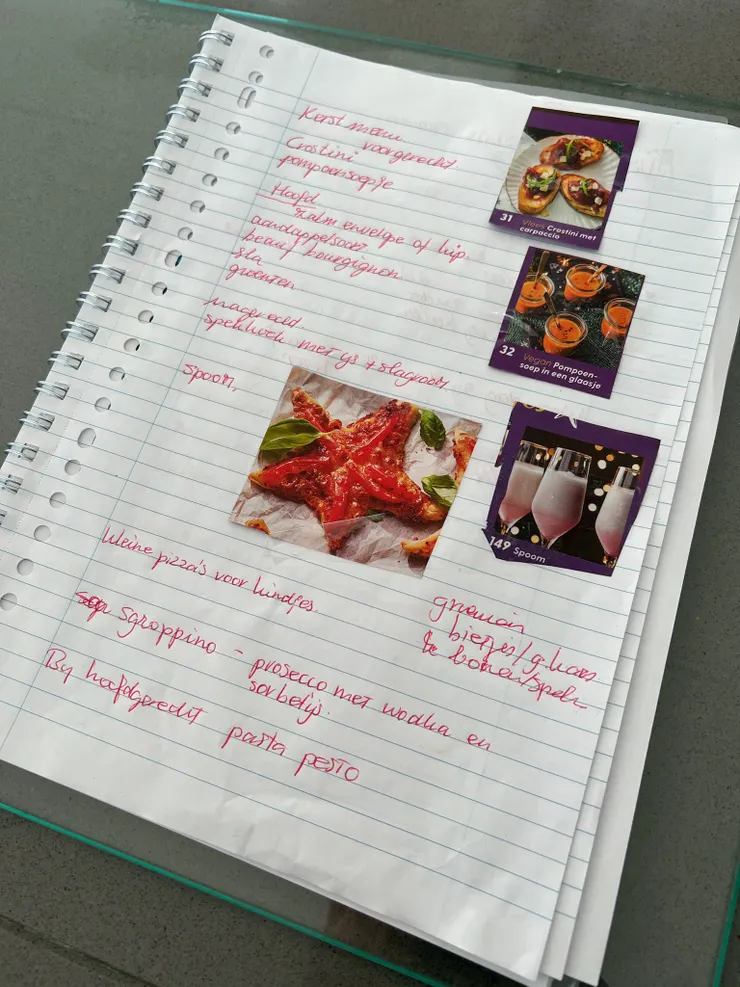 Kerst menu
voorgerecht
Crostini
pompoensoepje
Hoofd
zalm envelope of kip
aardappelsoort
beauf bourgignon
sla
groenten
nagerecht
spekkoek met ijs + slagroom
spoom,
31 Vlees Crostini met
carpaccio
32 Vegan Pompoen-
soep in een glaasje
149 Spoom
kleine pizza's voor kindjes.
sgroppino - prosecco met wodka en
sorbetijs.
By hoofdgerecht pasta pesto
groenten
bietjes/g.kaas
&